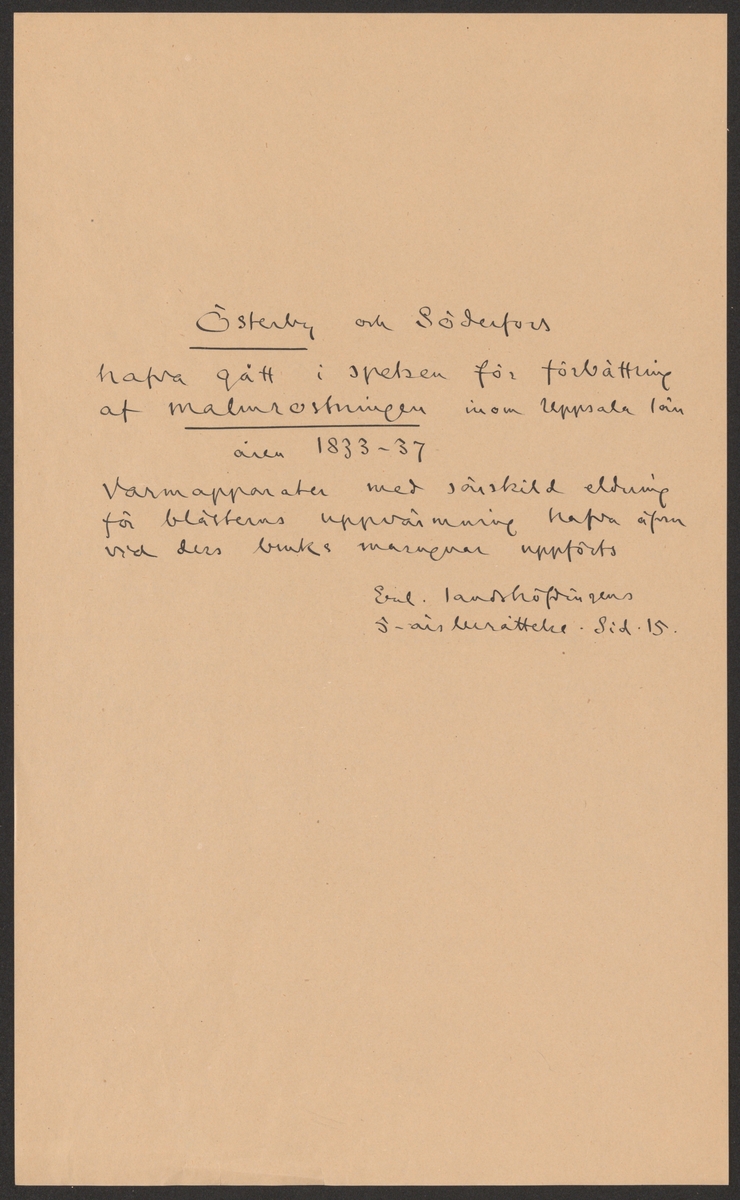 Österby och Söderfors
hafva gått i spetsen för förbättring
af malmrostningen inom Uppsala län
åren 1833-37
Varmapparater med särskild eldning
för blästerns uppvärmning hafva äfven
vid dess bruks masugnar uppförts
Enl. landshöfdingens
5-års berättelse. Sid. 15.